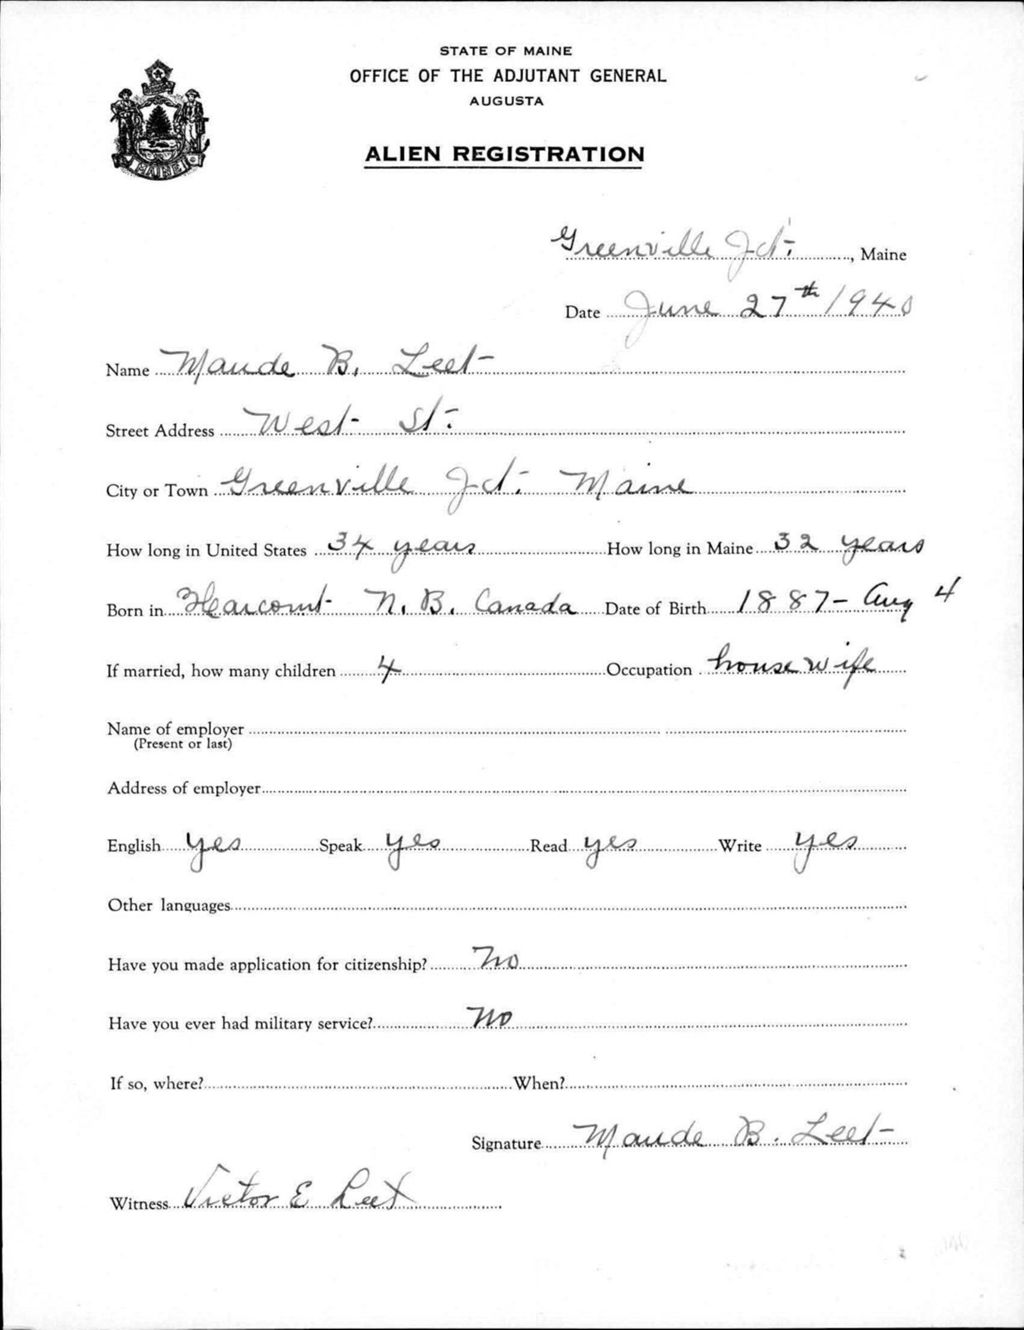 STATE OF MAINE
OFFICE OF THE ADJUTANT GENERAL
AUGUSTA
ALIEN REGISTRATION
MAINE
Greenville Jct., Maine
Date June 27th 1940
Name Maude B. Leet
Street Address West St.
City or Town Greenville Jct. Maine
How long in United States 34 years How long in Maine 32 years
Born in Harcourt N. B. Canada Date of Birth 1887 - Aug 4
If married, how many children 4 Occupation housewife
Name of employer
(Present or last)
Address of employer
English yes Speak yes Read yes Write yes
Other languages
Have you made application for citizenship? No
Have you ever had military service? No
If so, where? When?
Signature Maude B. Leet
Witness Victor E Leet